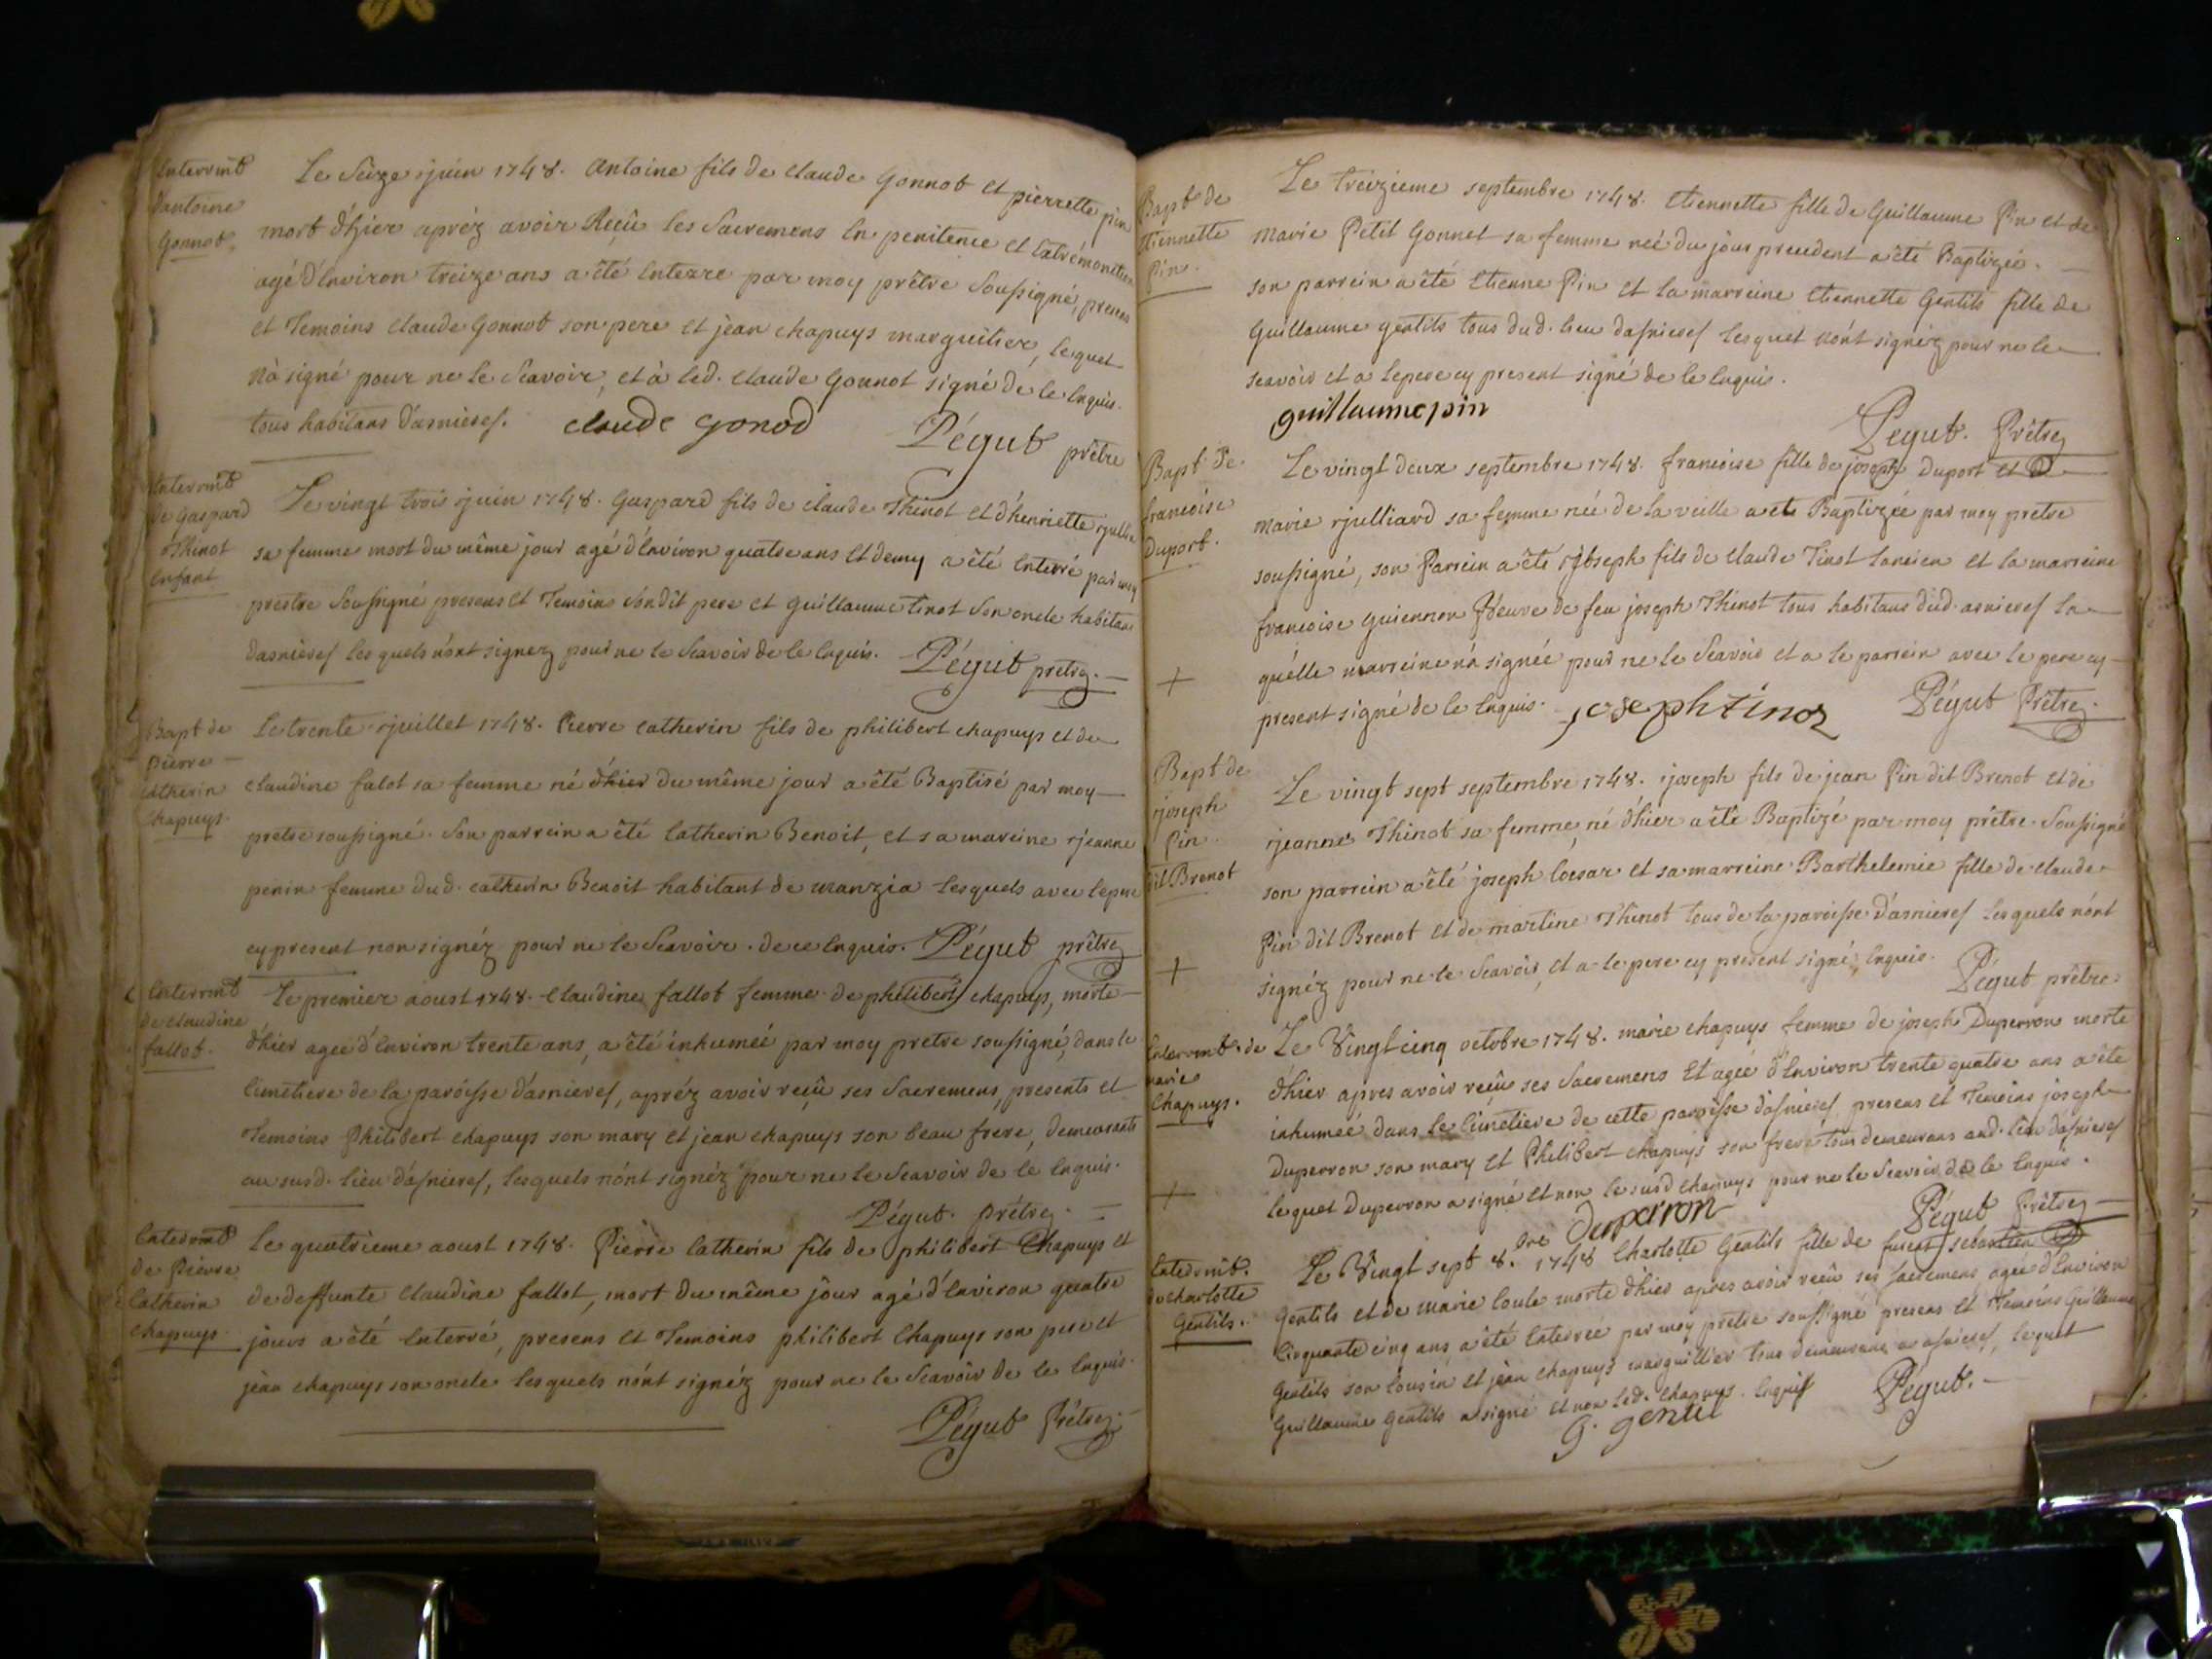 Interrmt
d'antoine
Gonnot.
Le Seize juin 1748. Antoine fils de claude Gonnot et pierrette pin
mort d'hjier apréz avoir Reçu les Sacremens En penitence et Extrémonction
agé d'Environ treize ans a été Enterre par moy prêtre Soussigné, presens
et Temoins claude Gonnot son pere et jean chapuys marguilier, lequel
n'à signé pour ne le Scavoir, et à led. claude Gonnot signé de ce Enquis.
tous habitans D'asnieres. claude gonod Pégut prêtre
Interrmt
de Gaspard
Thinot
Enfant
Le vingt trois juin 1748. Gaspard fils de claude Thinot et d'henriette
sa femme mort du même jour agé d'Environ quatre ans et demy a été Enterré par moy
prestre Soussigné presens et Temoins Sondit pere et Guillaume tinot Son oncle habitans
dasnieres lesquels n'ónt signez pour ne le Scavoir de ce Enquis. Pégut prêtre.
Bapt de
Pierre
Catherin
Chapuys.
Le trente juillet 1748. Pierre catherin fils de philibert chapuys et de
claudine falot sa femme né d'hier du même jour a été Baptisé par moy
prêtre soussigné. Son parrein a été Catherin Benoit, et sa mareine jeanne
penin femme dud. catherin Benoit habitant de manzia lesquels avec le pere
cy present non signéz pour ne le Scavoir. de ce Enquis. Pégut prêtre
Enterrmt
de claudine
fallot.
Le premier aoust 1748. Claudine fallot femme de philibert chapuys, morte
d'hier agée d'Environ trente ans, a été inhumée par moy pretre soussigné, dans le
Cimetiere de la paróisse d'asnieres, apréz avoir reçu ses Sacremens, presents et
Temoins Philibert chapuys son mary et jean chapuys son beau frere, demeurants
au susd. lieu d'asnieres, lesquels n'ónt signéz pour ne le Scavoir de ce Enquis.
Pégut. prêtre.
Enterrmt
de Pierre
Catherin
Chapuys.
Le quatrieme aoust 1748. Pierre Catherin fils de philibert Chapuys et
de deffunte Claudine fallot, mort du même jour agé d'Environ quatre
jours a été Enterré, presens et Temoins philibert Chapuys son pere et
jean chapuys son oncle lesquels n'ónt signéz pour ne le Scavoir de ce Enquis.
Pégut Prêtre.
Bapt de
Etiennette
Pin.
Le treizieme septembre 1748. Etiennette fille de Guillaume Pin et de
Marie Petit Gonnet sa femme neé du jóur precedent a été Baptizée.
son parrein a été Etienne Pin et la marreine Etiennette Gentils fille de
Guillaume gentils tous dud. lieu dasnieres lesquel n'ónt signéz pour ne le
scavoir et a le pere cy present signé de ce Enquis.
guillaume pin
Pegut. Prêtre
Bapt de
francoise
Duport.
Le vingt deux septembre 1748. francoise fille de joseph Duport et
Marie julliard sa femme née de la veille a ete Baptizée par moy pretre
soussigné, son Parrein a été joseph fils de claude Tinot lancien et la marreine
francoise Guiennon Veuve de feu joseph Thinot tous habitans dud. asnieres la
quelle marreine n'à signée pour ne le Scavoir et a le parrein avec le pere cy
present signé de ce Enquis. joseph tinoz Pégut Prêtre.
Bapt de
joseph
Pin
dit Brenot
Le vingt sept septembre 1748. joseph fils de jean Pin dit Brenot et de
jeanne Thinot sa femme, né d'hier a été Baptizé par moy prêtre Soussigné
son parrein a été joseph Coesar et sa marreine Barthelemie fille de claude
Pin dit Brenot et de martine Thinot tous de la paroisse d'asnieres lesquels n'ónt
signéz pour ne le Scavoir, et a le pere cy present signé, Enquis.
Pégut prêtre
Enterrmt. de
marie
Chapuys.
Le Vingt cinq octobre 1748. marie chapuys femme de joseph Duperron morte
d'hier apres avoir reçu ses Sacremens Et agée d'Environ trente quatre ans a été
inhumeé dans le Cimetiere de cette paroisse d'asnieres, presens et Temoins joseph
Duperron son mary et Philibert chapuys son frere tous demeurans aud. lieu d'asnieres
lequel Duperron a signé et non le susd chapuys pour ne le Scavoir de ce Enquis.
duperron Pégut Prêtre
Enterrmt.
de Charlotte
Gentils.
Le Vingt sept 8.bre 1748 Charlotte Gentils fille de sebastien
Gentils et de marie Coule morte d'hier apres avoir reçu ses sacremens, agée d'Environ
Cinquante cinq ans a été Enterrée par moy prêtre soussigné presens et Temoins Guillaume
Gentils son Cousin et jean chapuys marguillier tous demeurans a asnieres, lequel
Guillaume Gentils a signé et non led. chapuys. Enquis Pégut.
G. gentil